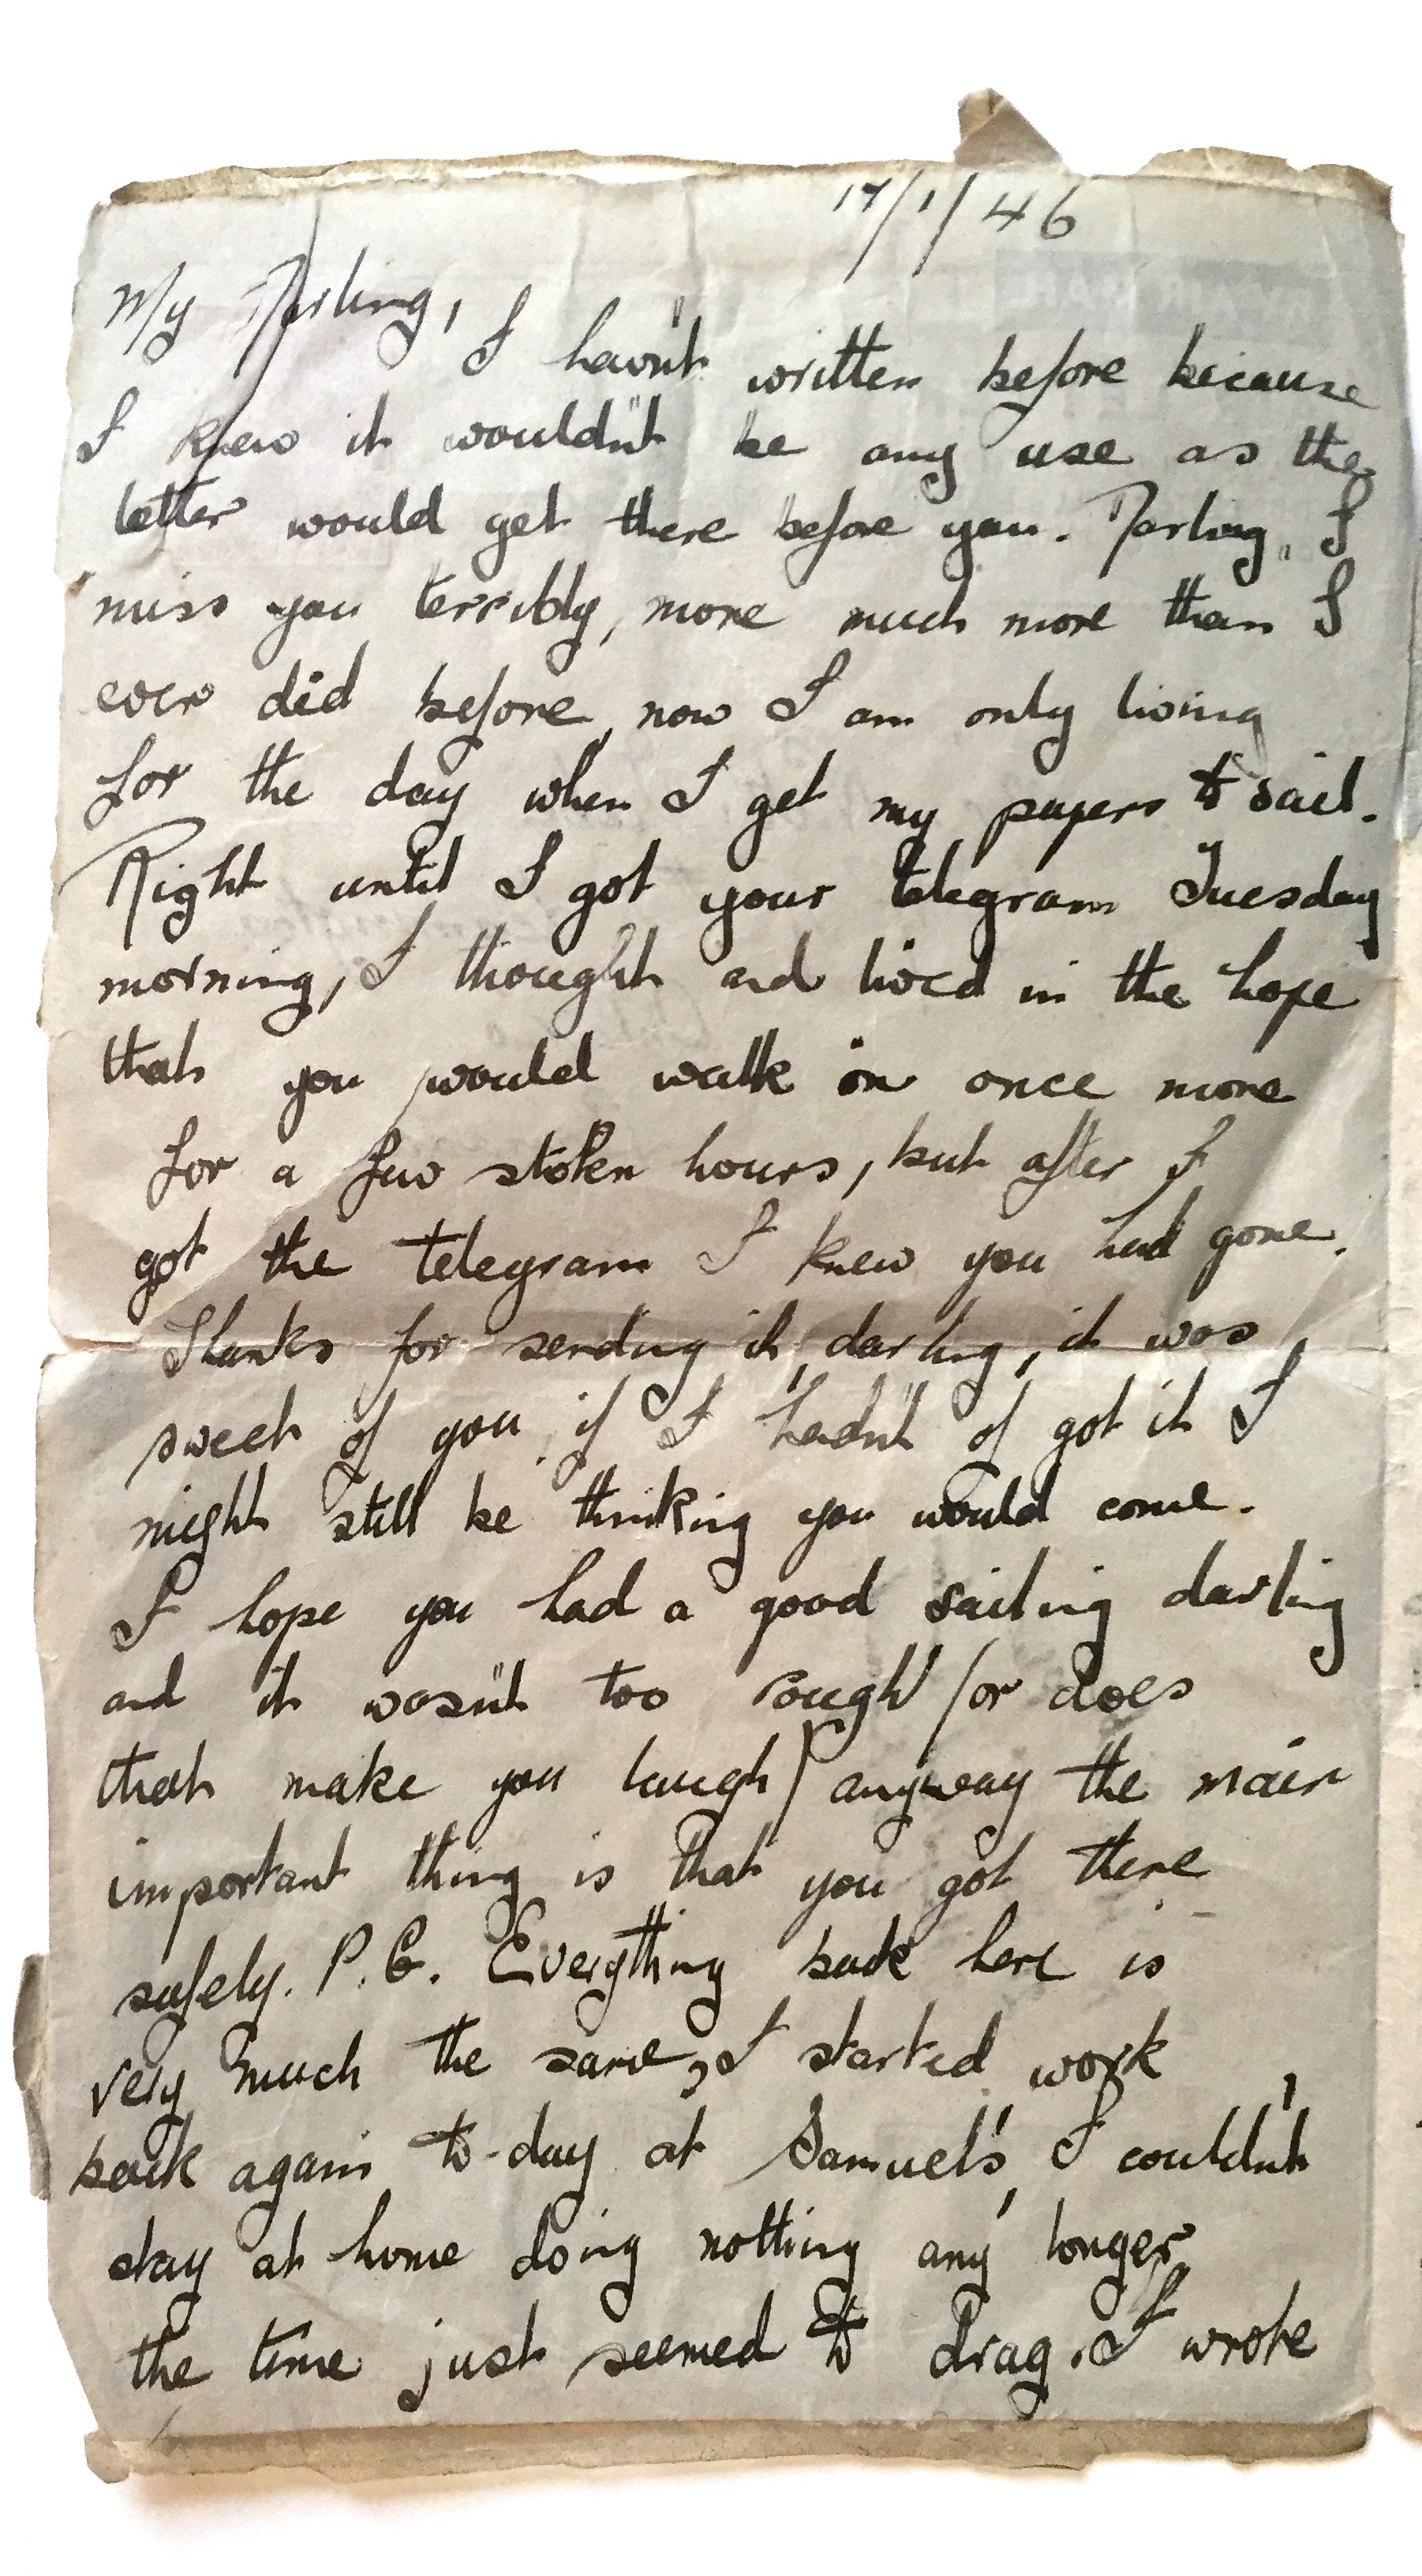 17/1/46
My Darling,
I havn't written before because
I knew it wouldn't be any use as the
letter would get there before you. Darling, I
miss you terribly, more much more than I
ever did before, now I am only living
for the day when I get my papers to sail.
Right until I got your telegram Tuesday
morning, I thought and lived in the hope
that you would walk in once more
for a few stolen hours, but after I
got the telegram I knew you had gone.
Thanks for sending it, darling, it was
sweet of you, if I hadn't of got it I
might still be thinking you would come.
I hope you had a good sailing darling
and it wasn't too rough (or does
that make you laugh) anyway the main
important thing is that you got there
safely. P.G. Everything back here is
very much the same, I started work
back again to-day at Samuel's, I couldn't
stay at home doing nothing any longer,
the time just seemed to drag. I wrote